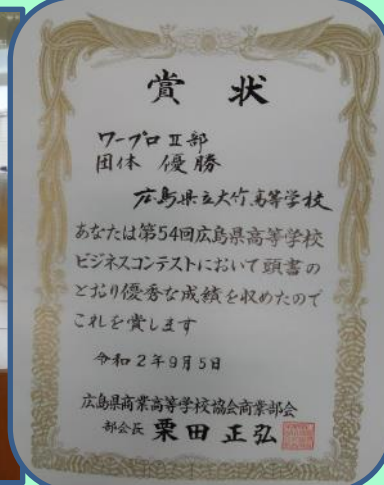 賞状
ワープロⅡ部
団体 優勝
広島県立大竹高等学校
あなたは第54回広島県高等学校
ビジネスコンテストにおいて頭書の
とおり優秀な成績を収めたので
これを賞します
令和2年9月5日
広島県商業高等学校協会商業部会
部会長 栗田 正弘